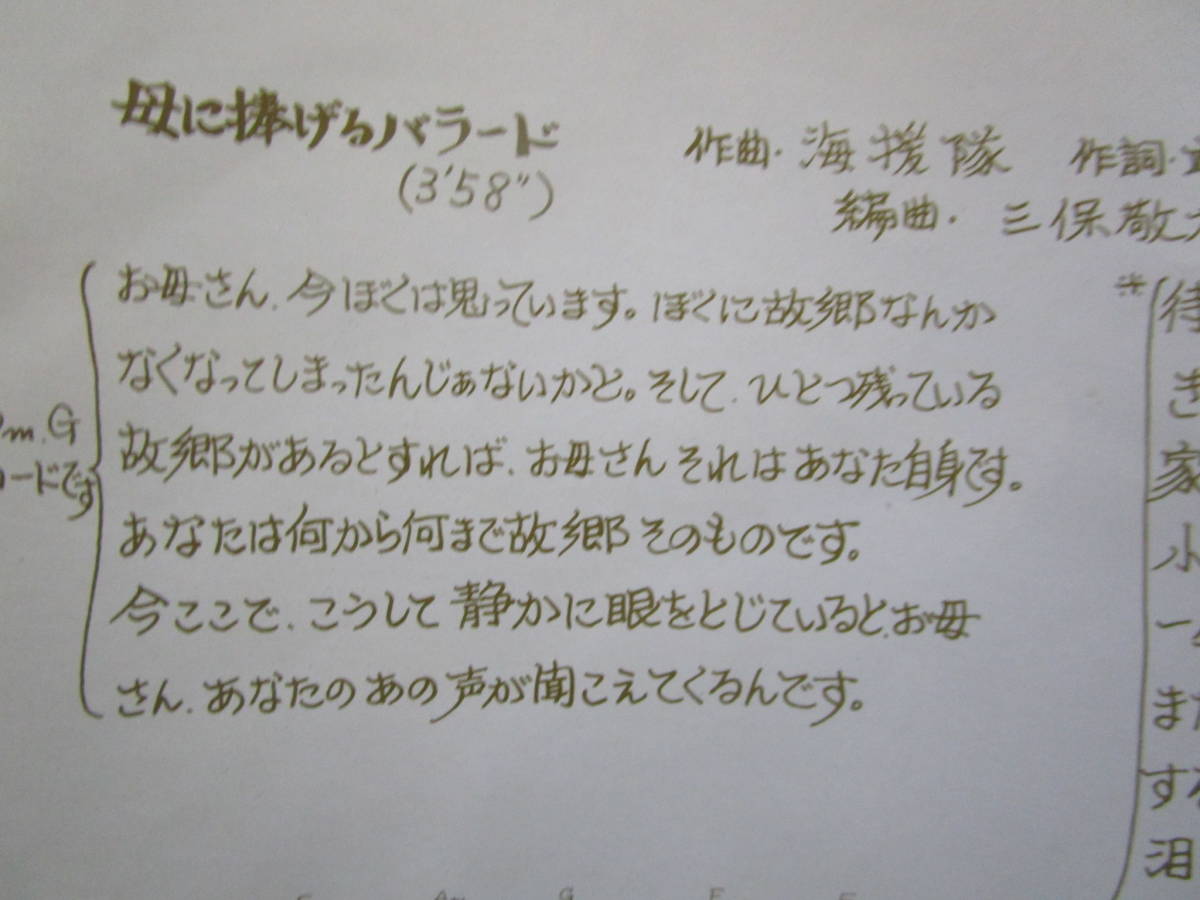 母に捧げるバラード
(3'58")
作曲・海援隊 作詞・
編曲・三保敬
m.G
ードです
お母さん、今ぼくは思っています。ぼくに故郷なんか
なくなってしまったんじゃないかと。そして、ひとつ残っている
故郷があるとすれば、お母さんそれはあなた自身です。
あなたは何から何まで故郷そのものです。
今ここで、こうして静かに眼をとじていると、お母
さん、あなたのあの声が聞こえてくるんです。
*
待
き
家
小
一
また
する
泪